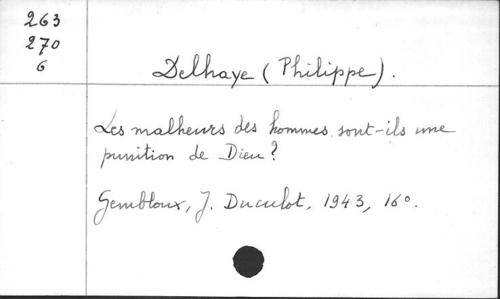 263
270
6
Delhaye (Philippe).
Les malheurs des hommes sont-ils une
punition de Dieu?
Gembloux, J. Duculot, 1943, 16°.